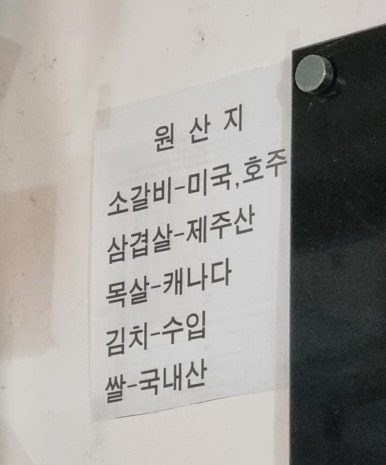 원 산 지
소갈비-미국,호주
삼겹살-제주산
목살-캐나다
김치-수입
쌀-국내산